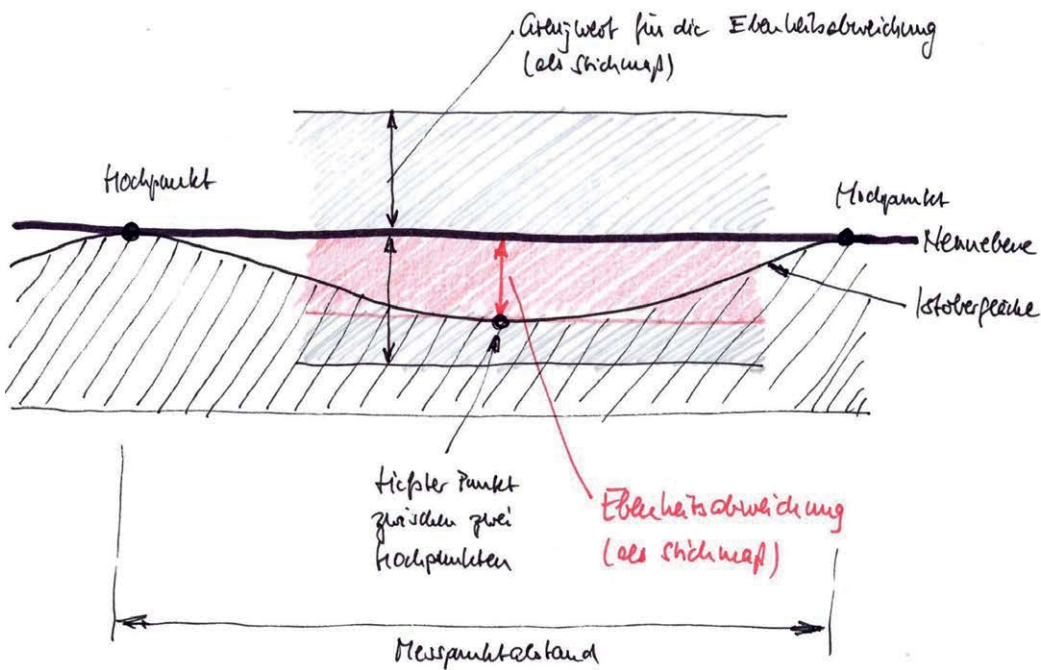 Grenzwert für die Ebenheitsabweichung
(als Stichmaß)
Hochpunkt
Hochpunkt
Nennebene
Istoberfläche
tiefster Punkt
zwischen zwei
Hochpunkten
Ebenheitsabweichung
(als Stichmaß)
Messpunktabstand